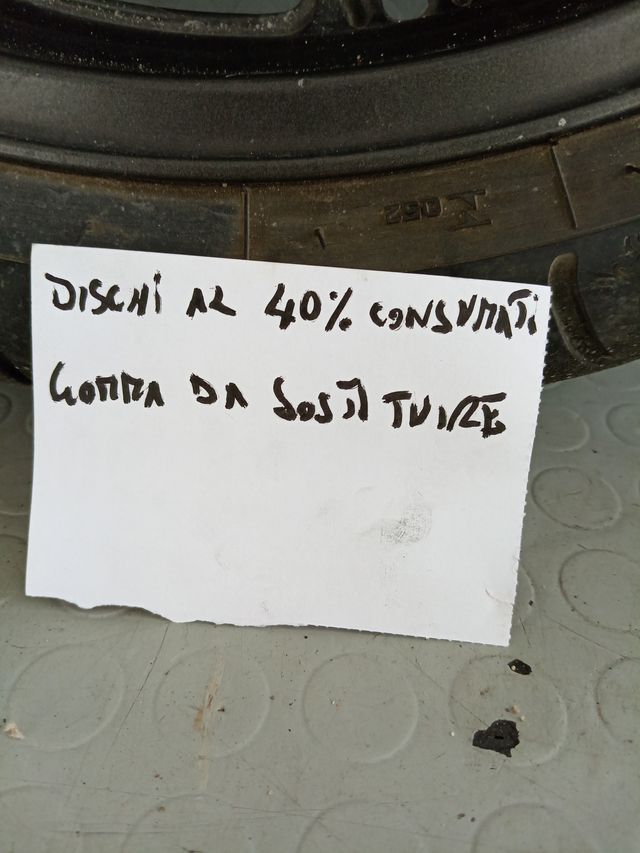 K 052
DISCHI AL 40% CONSUMATI
GOMMA DA SOSTITUIRE